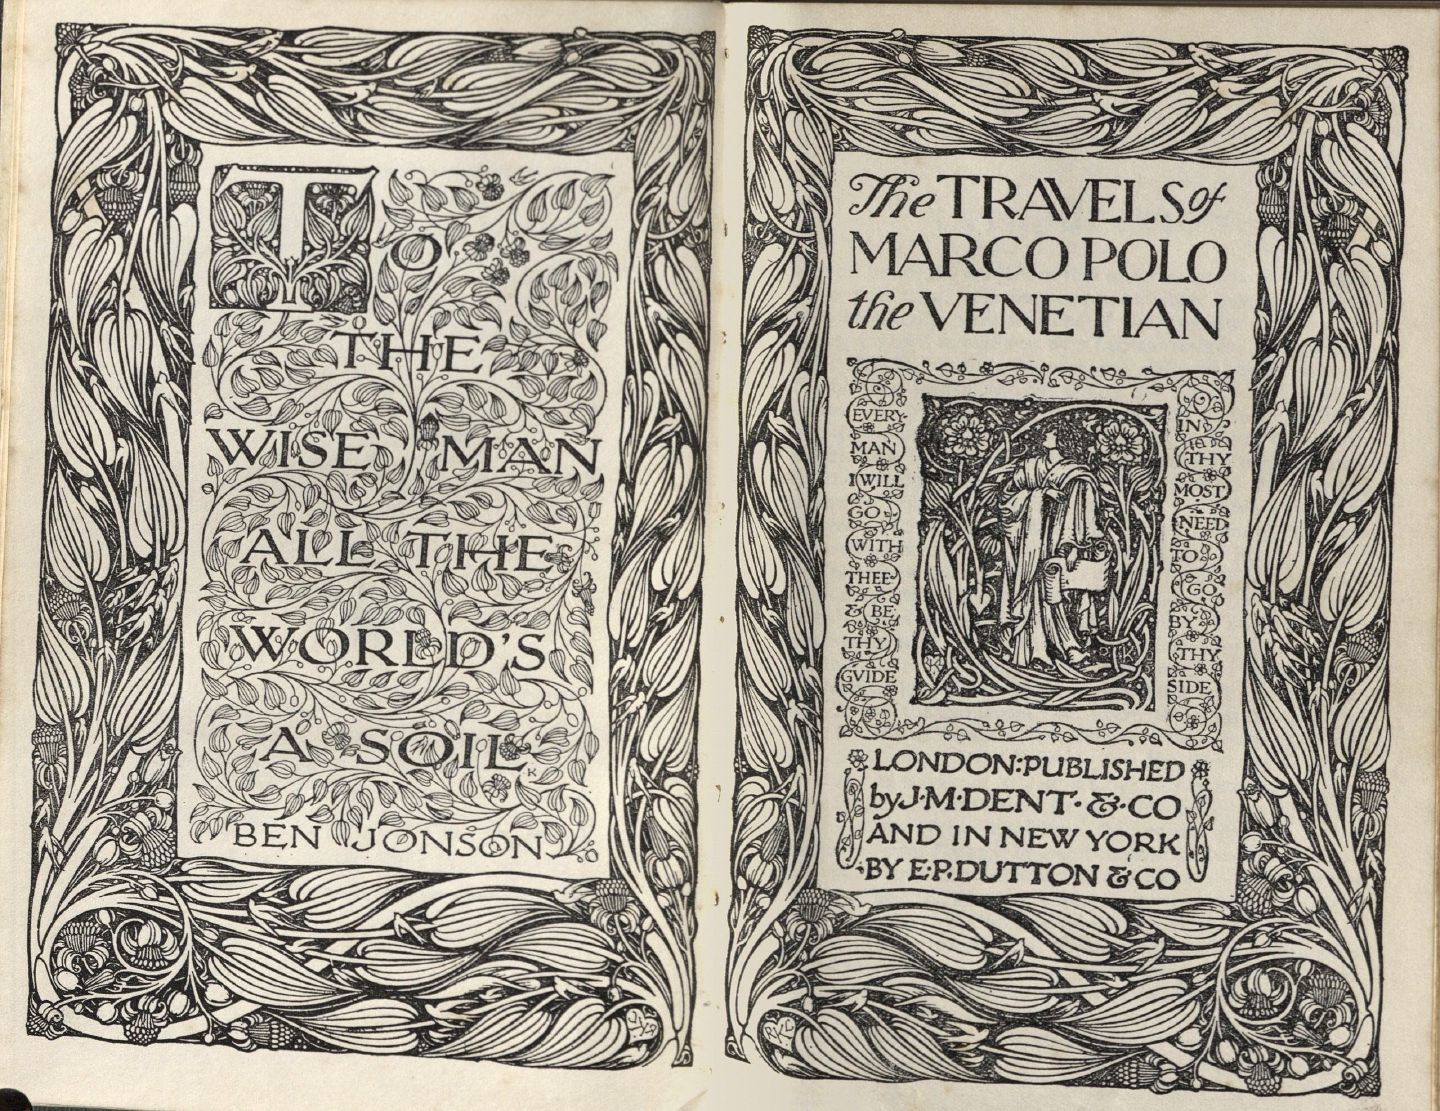 TO
THE
WISE MAN
ALL THE
WORLD'S
A SOIL
K
BEN JONSON
The TRAVELS of
MARCO POLO
the VENETIAN
EVERY
MAN
I WILL
GO
WITH
THEE
& BE
THY
GUIDE
IN
THY
MOST
NEED
TO
GO
BY
THY
SIDE
LONDON:PUBLISHED
by J·M·DENT·&·CO
AND IN NEW YORK
BY E·P·DUTTON & CO